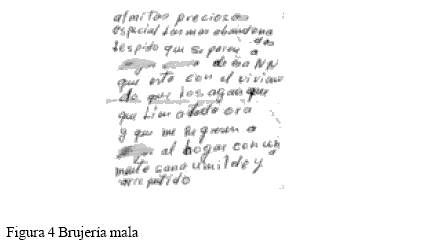 almitas preciosas
especial las mas abandona
das
les pido que separen a
de ésa NN
que esta con el vivien
do que los agan que
que tiren a toda ora
y que me Regresen a
al hogar con un
mente sano umilde y
arrepentido
Figura 4 Brujería mala